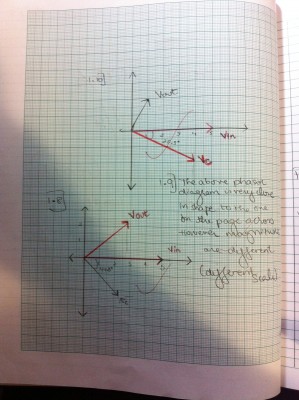 1.10]
Vout
Vin
Vc
1.9] The above phasor
diagram is very close
in shape to the one
on the page across
However magnitudes
are different
(different
scale)
1.8]
Vout
Vin